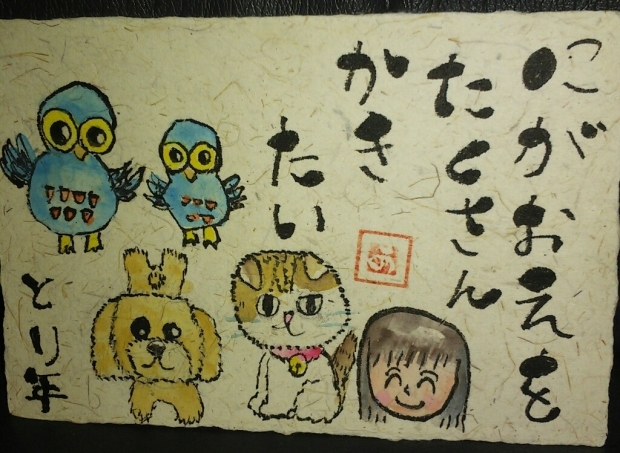 にがおえを
たくさん
かき
たい
とり年